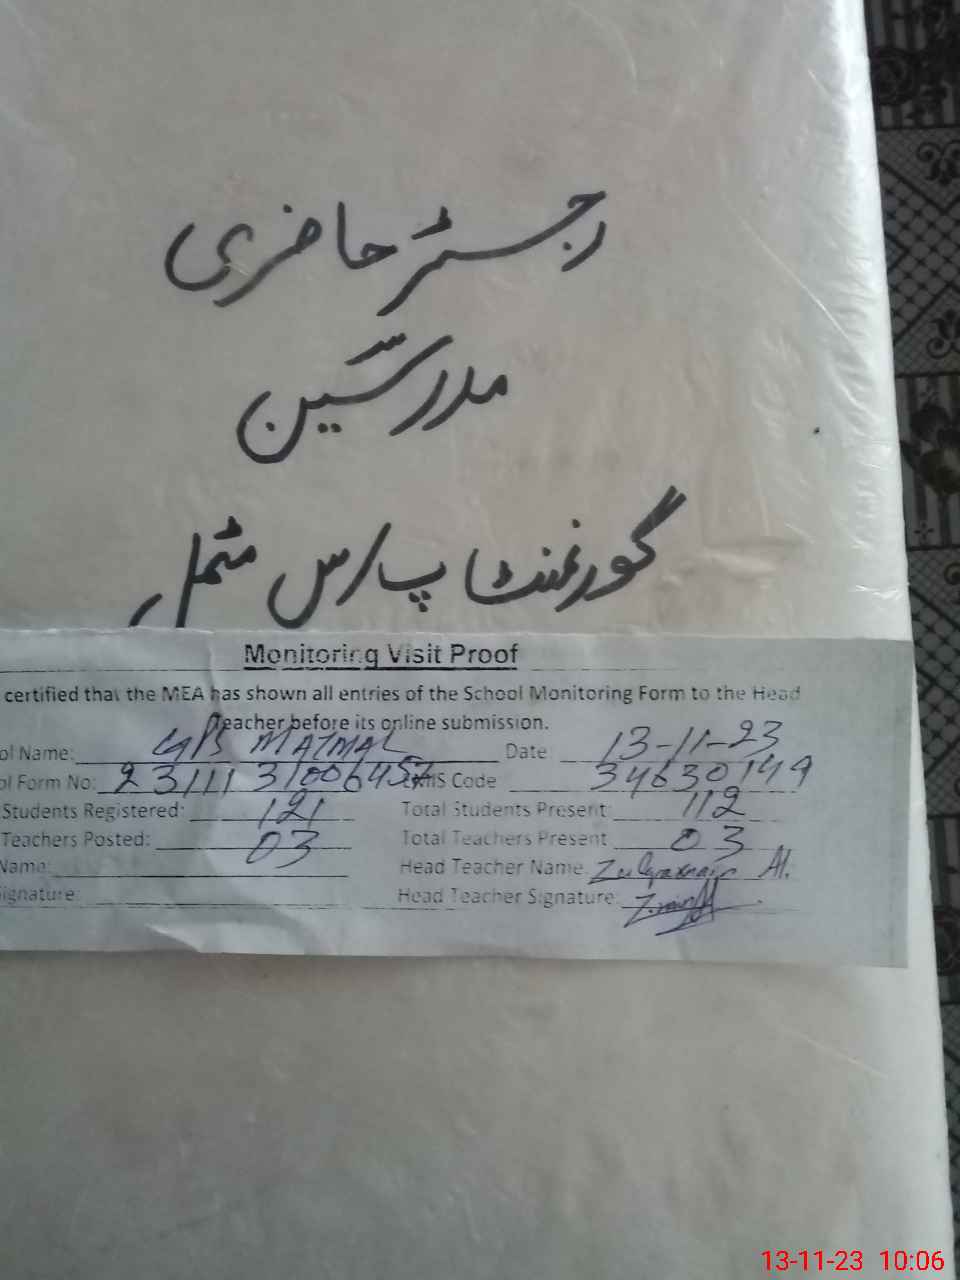 رجسٹر حاضری
مدرسین
گورنمنٹ پارس مٹمل
Monitoring Visit Proof
certified that the MEA has shown all entries of the School Monitoring Form to the Head
Teacher before its online submission.
ol Name: GPS MATMAL Date: 13-11-23
ol Form No: 23111 31006457 EMIS Code 34630149
Students Registered: 121 Total Students Present: 112
Teachers Posted: 03 Total Teachers Present 03
Name: Head Teacher Name
ignature: Head Teacher Signature:
13-11-23 10:06